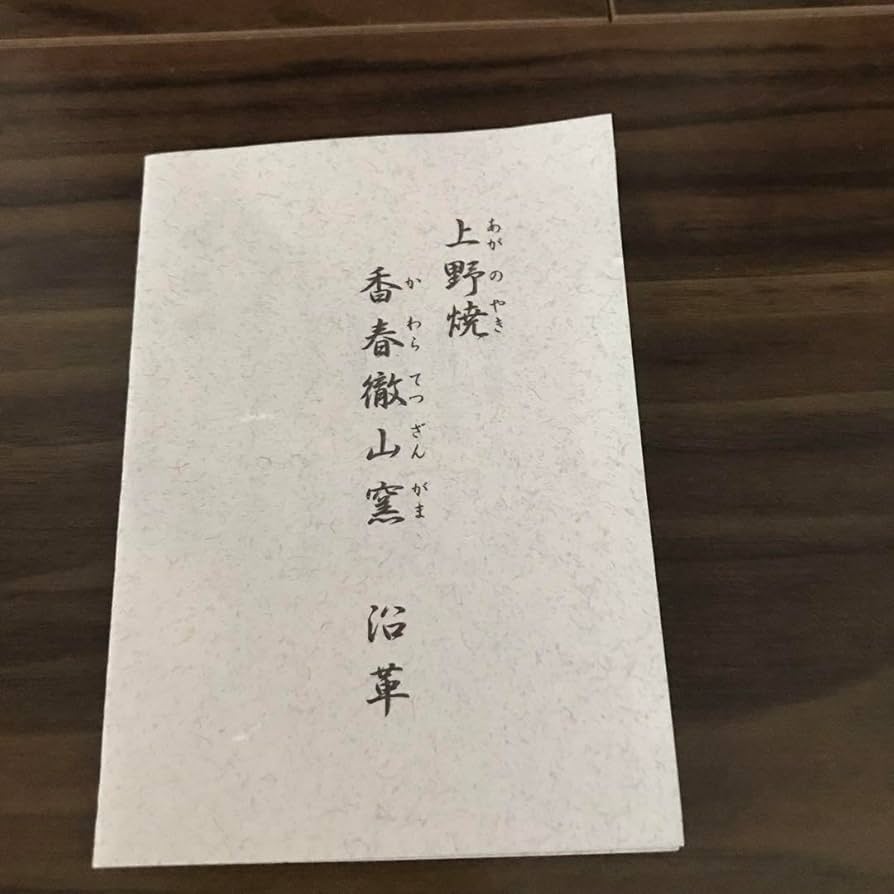 上野焼
あがのやき
香春徹山窯 沿革
かわらてつざんがま